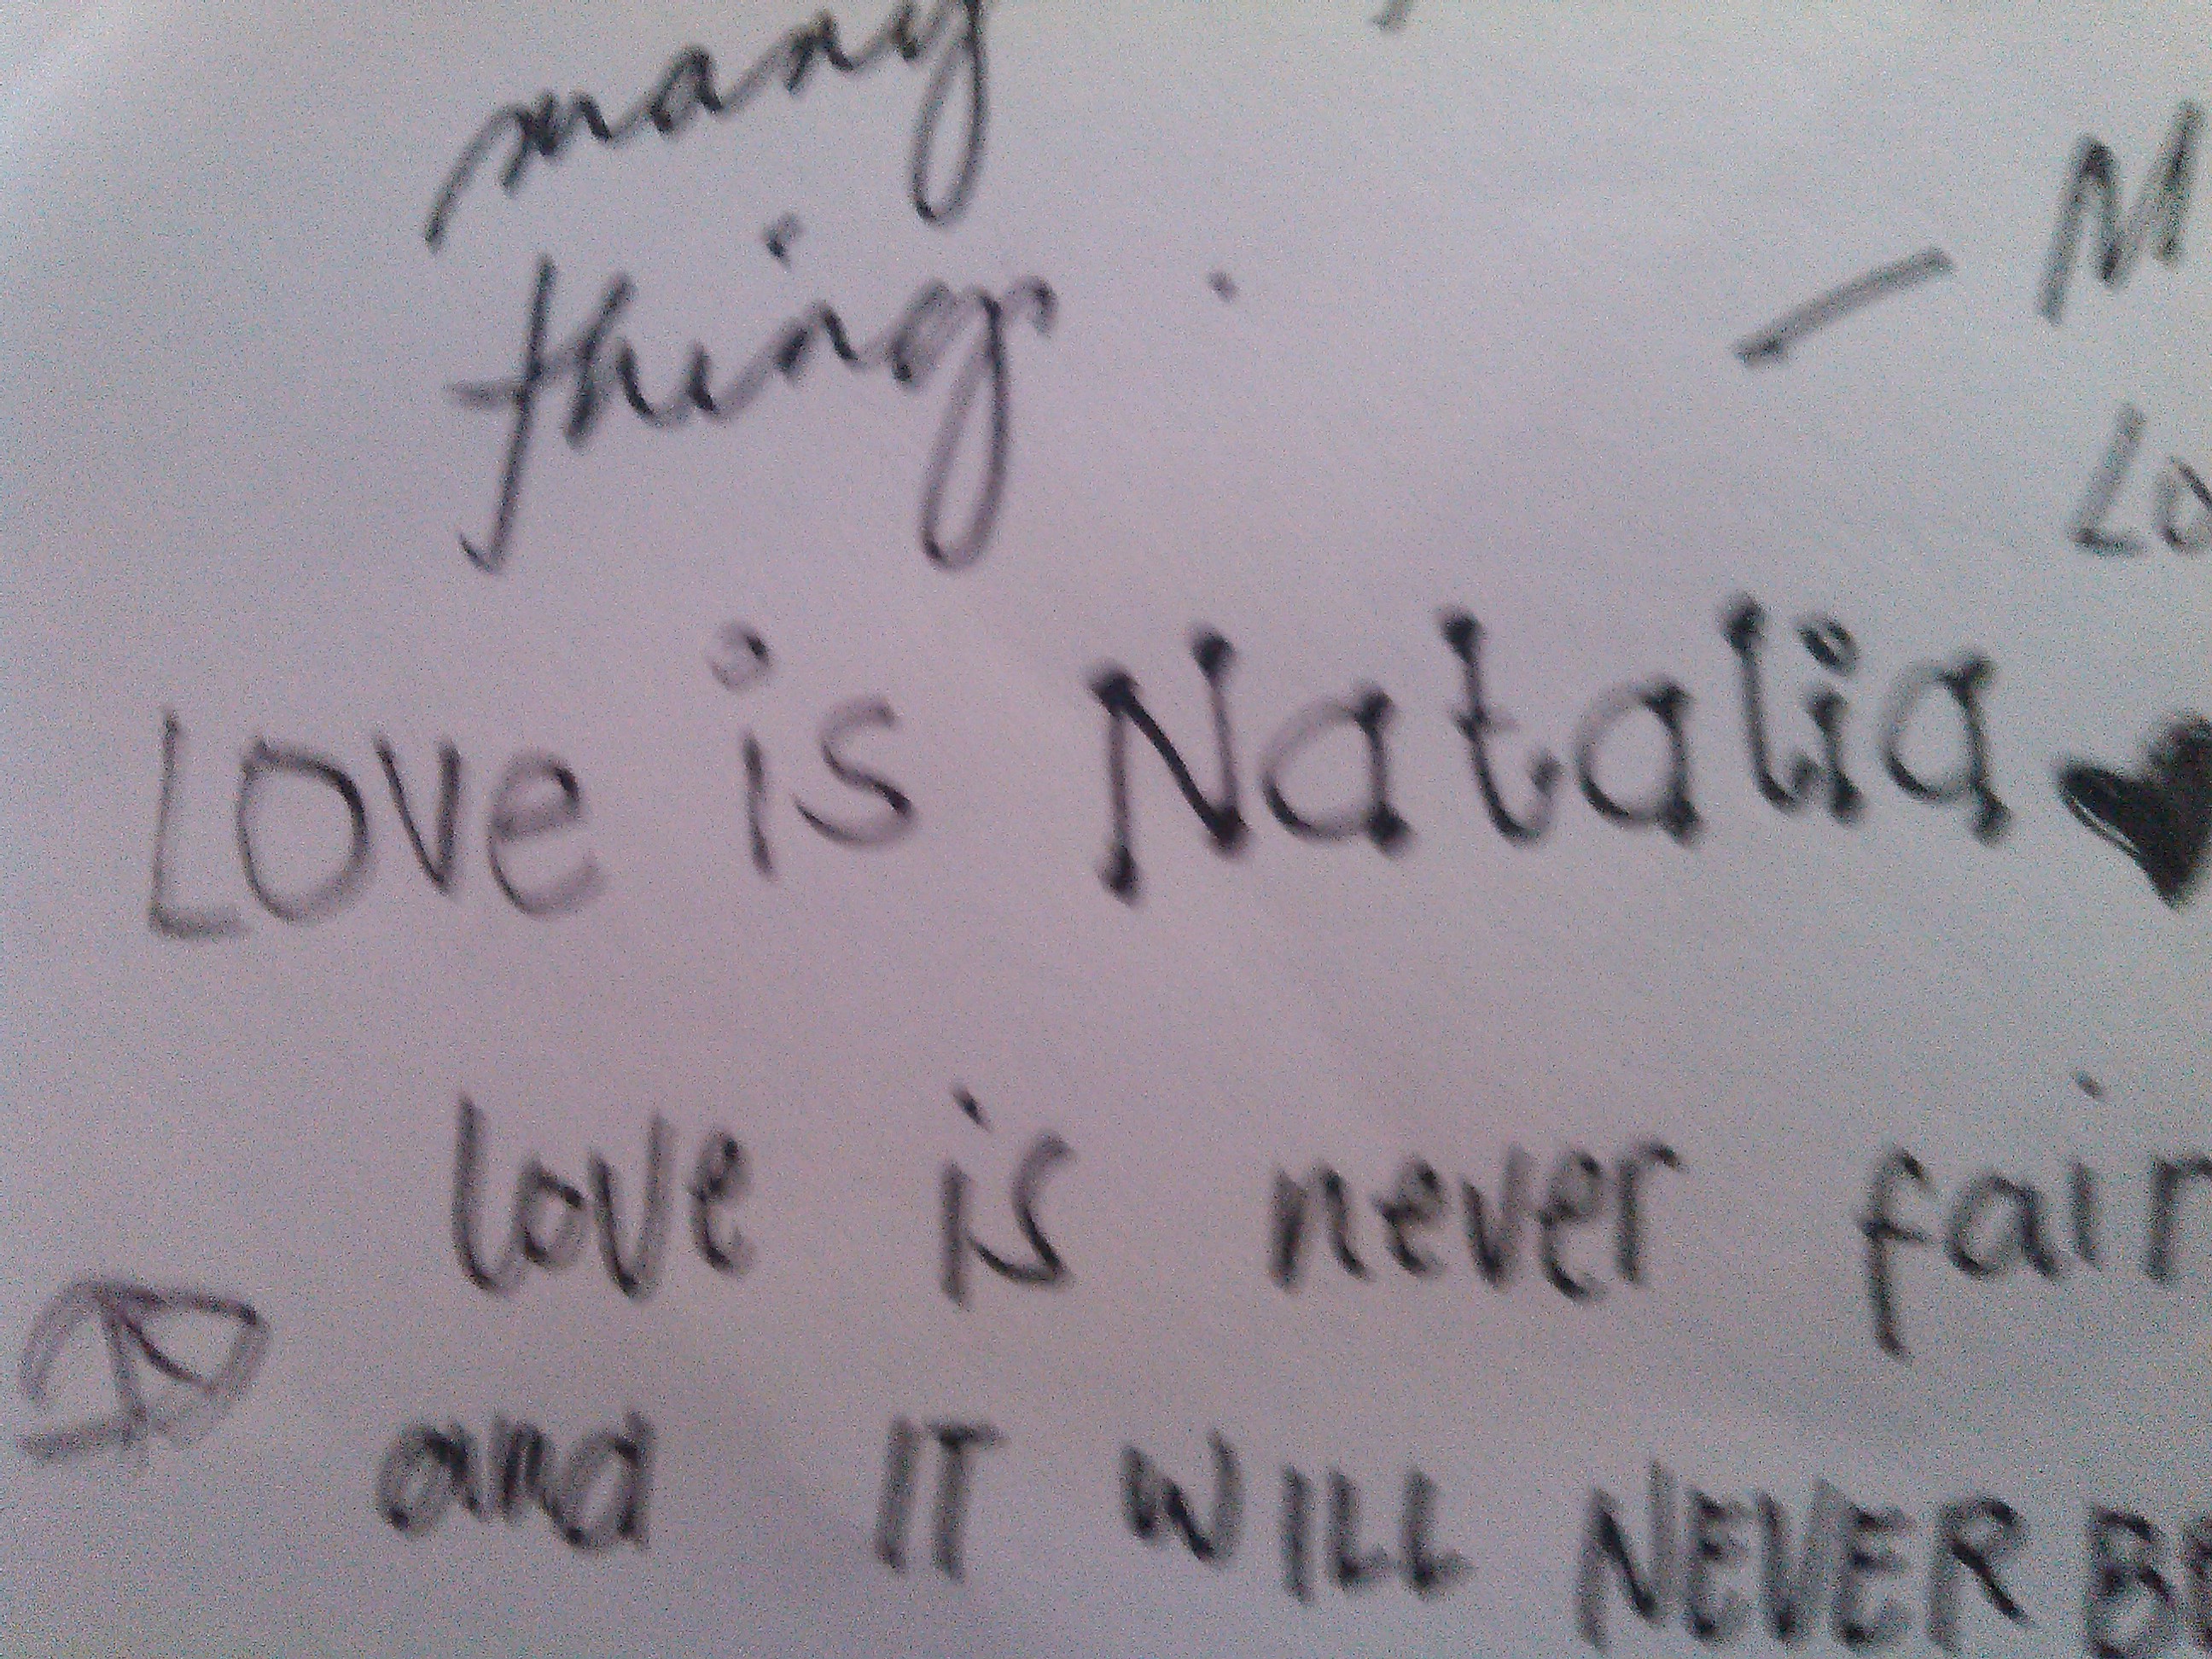 many
things.
— M
Lo
Love is Natalia
love is never fair
and IT WILL NEVER BE